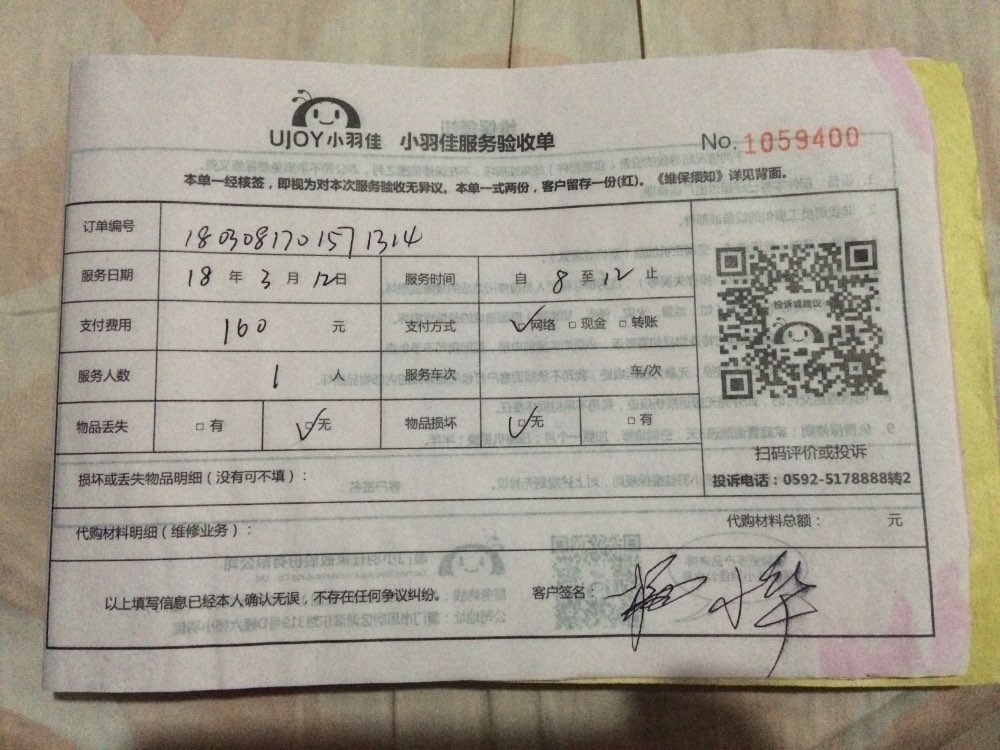 UJOY小羽佳 小羽佳服务验收单 No. 1059400
本单一经核签，即视为对本次服务验收无异议。本单一式两份，客户留存一份(红)。《维保须知》详见背面。
订单编号 1803081701571314
服务日期 18 年 3 月 12 日 服务时间 自 8 至 12 止
支付费用 160 元 支付方式 ☑网络 □现金 □转账
服务人数 1 人 服务车次 车/次
物品丢失 □有 ☑无 物品损坏 ☑无 □有
投诉或建议
扫码评价或投诉
投诉电话：0592-5178888转2
损坏或丢失物品明细（没有可不填）：
代购材料明细（维修业务）： 代购材料总额： 元
以上填写信息已经本人确认无误，不存在任何争议纠纷。 客户签名：